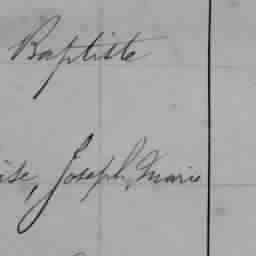 Baptiste
Joseph, Marie